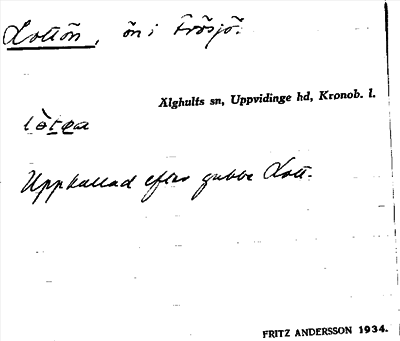 Lottön, ön i Frösjö.
Älghults sn, Uppvidinge hd, Kronob. l.
Uppkallad efter gubbe Lott.
FRITZ ANDERSSON 1934.